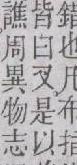 錯也凡布指
皆曰叉是以
譙周異物志